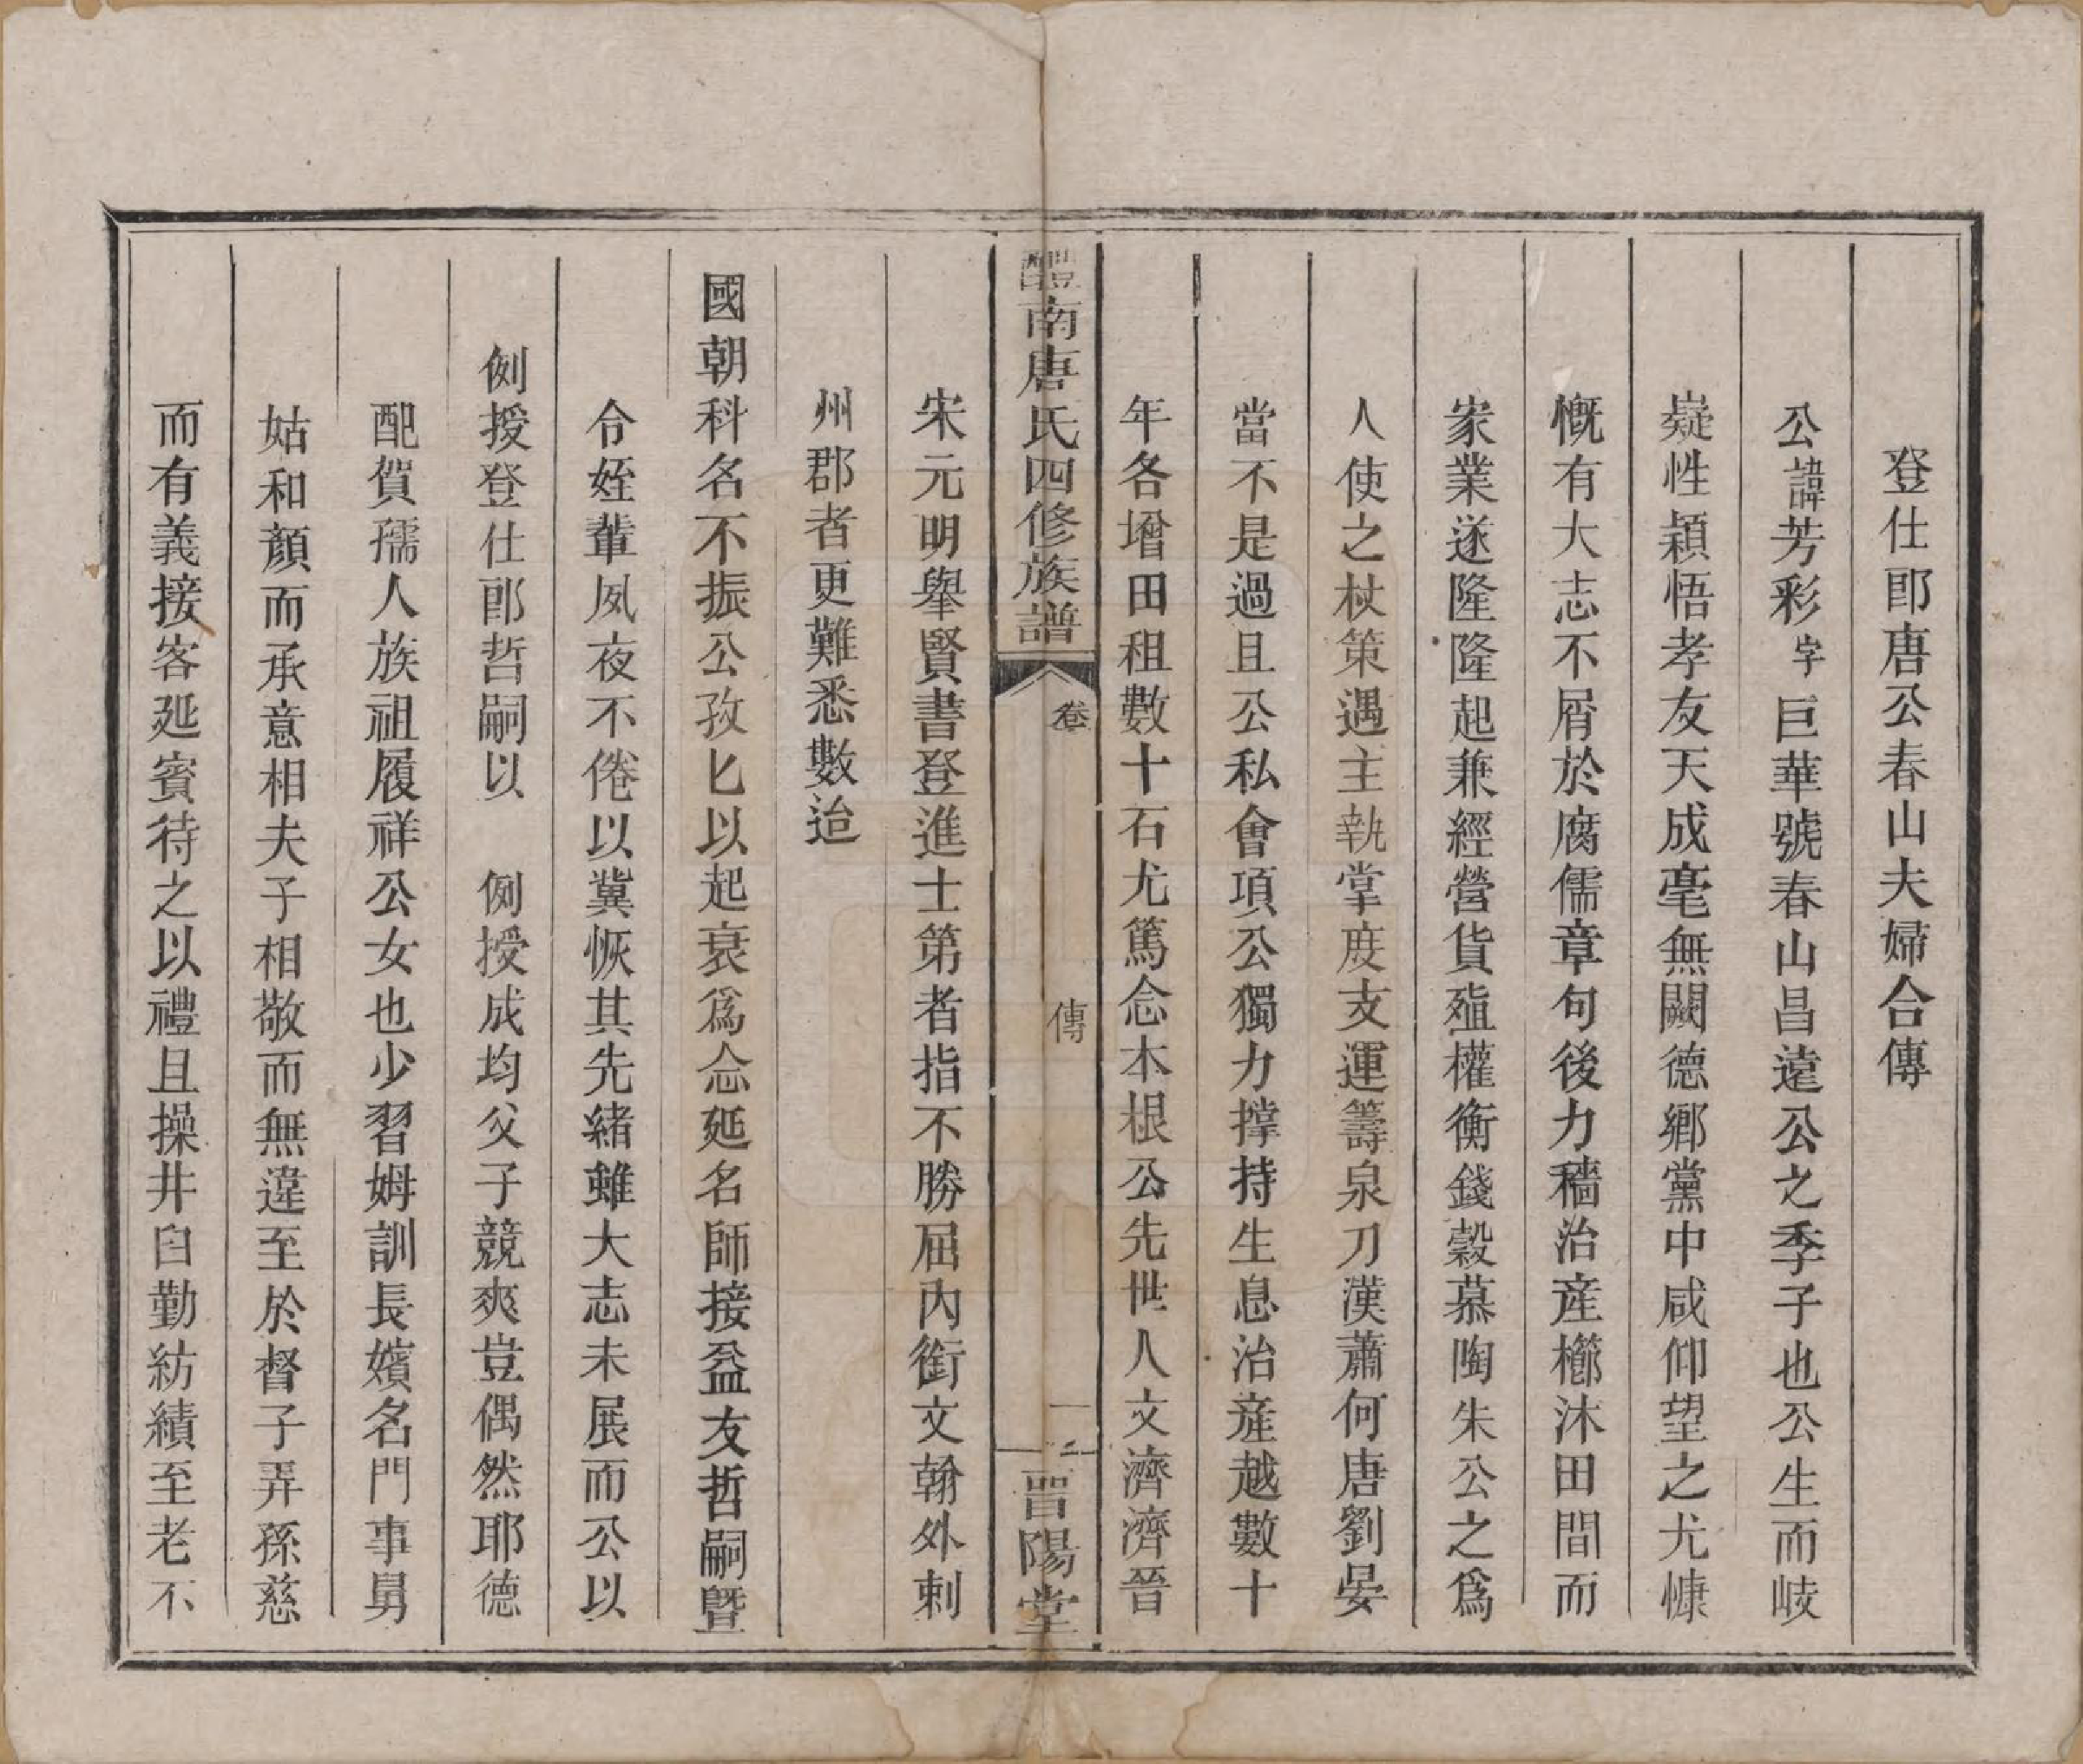 登仕郎唐公春山夫婦合傳
公諱芳彩字巨華號春山昌遠公之季子也公生而岐
嶷性穎悟孝友天成毫無闕德鄉黨中咸仰望之尤慷
慨有大志不屑於腐儒章句後力穡治產櫛沐田間而
家業遂隆隆起兼經營貨殖權衡錢穀慕陶朱公之爲
人使之杖策遇主執掌度支運籌泉刀漢蕭何唐劉晏
當不是過且公私會項公獨力撐持生息治產越數十
年各增田租數十石尤篤念木根公先世人文濟濟晉
醴南唐氏四修族譜
卷
傳
一
晉陽堂
宋元明舉賢書登進士第者指不勝屈內銜文翰外剌
州郡者更難悉數迨
國朝科名不振公孜匕以起衰爲念延名師接益友哲嗣暨
令姪輩夙夜不倦以冀恢其先緒雖大志未展而公以
例授登仕郎哲嗣以　例授成均父子競爽豈偶然耶德
配賀孺人族祖履祥公女也少習姆訓長嬪名門事舅
姑和顏而承意相夫子相敬而無違至於督子弄孫慈
而有義接客延賓待之以禮且操井臼勤紡績至老不